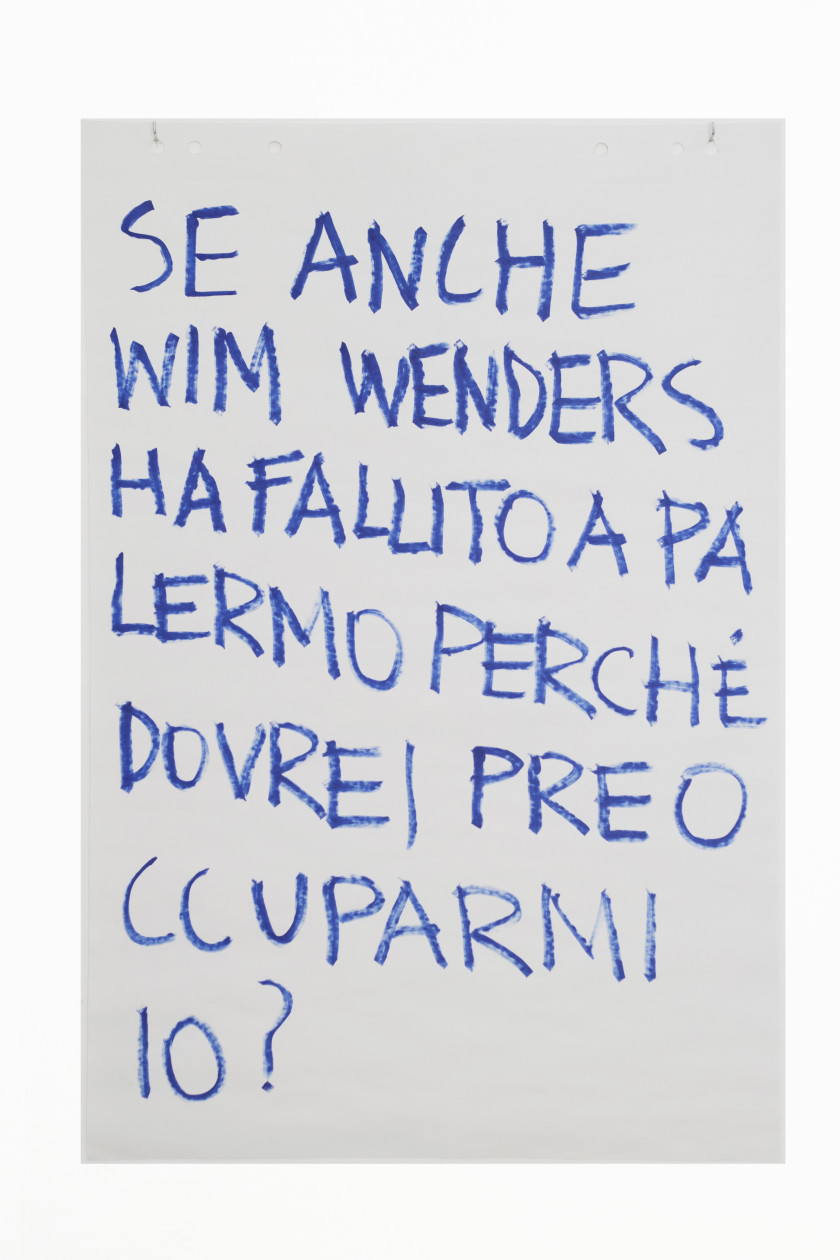 SE ANCHE
WIM WENDERS
HA FALLITO A PA
LERMO PERCHÉ
DOVREI PREO
CCUPARMI
IO?